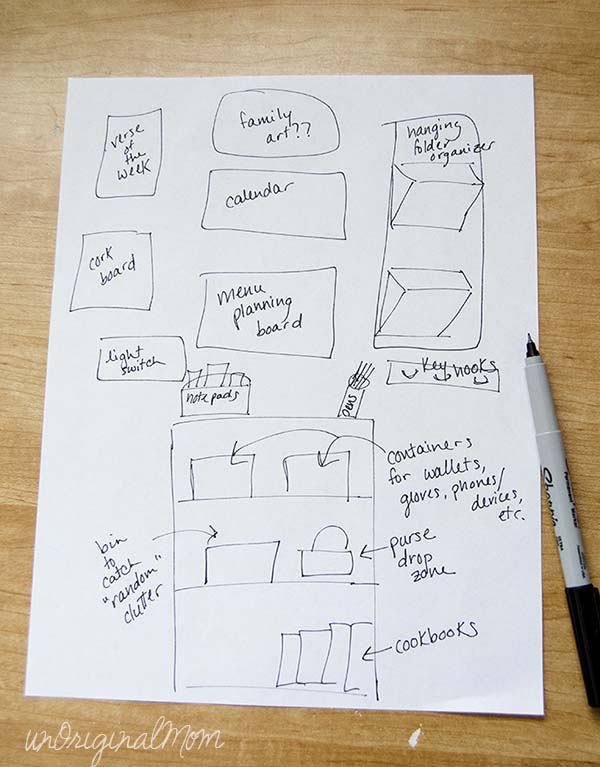 verse
of
the
week
family
art??
hanging
folder
organizer
calendar
cork
board
menu
planning
board
light
switch
note pads
pens
key hooks
containers
for wallets,
gloves, phones/
devices,
etc.
bin
to
catch
"random"
clutter
purse
drop
zone
cookbooks
Sharpie
unOriginalMom